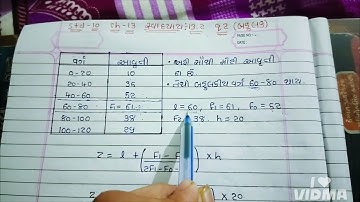 ધોરણ-10 Ch-13 સ્વાધ્યાય 13.2 પૂરક (બહુલક)
PAGE NO.:
DATE:
વર્ગ આવૃત્તિ
0-20 10
20-40 35
40-60 52
60-80 F1 = 61
80-100 38
100-120 29
• અહીં સૌથી મોટી આવૃત્તિ
• તેથી બહુલકીય વર્ગ 60-80 થાય.
l = 60, F1 = 61, F0 = 52
F2 = 38. h = 20
Z = l + (F1 - F / 2F1 - F0 - ) × h
× 20
I ♥
VIDMA